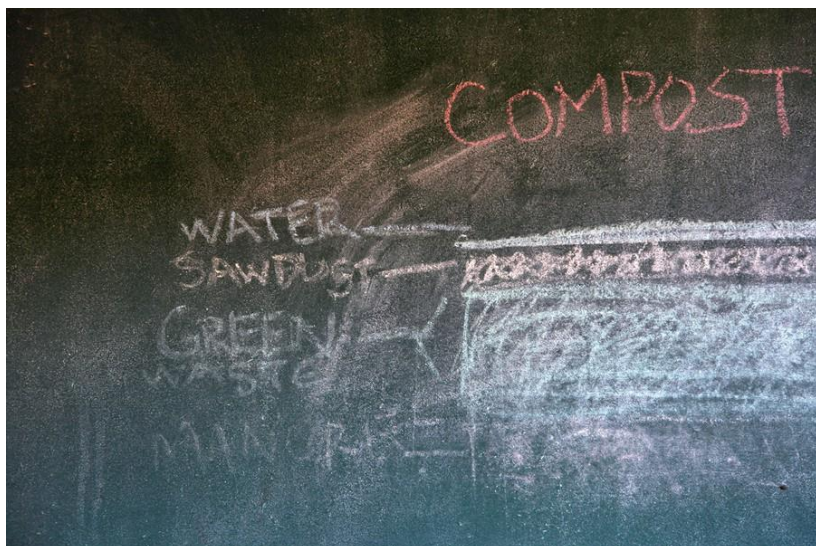 COMPOST
WATER
SAWDUST
GREEN
WASTE
MANURE